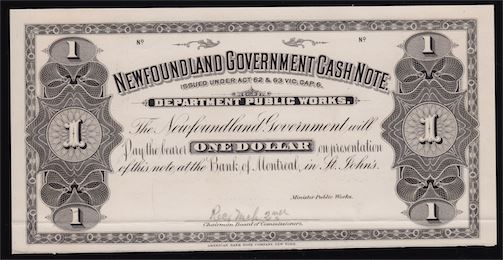 1 Nº Nº 1
NEWFOUNDLAND GOVERNMENT CASH NOTE.
ISSUED UNDER ACT 62 & 63 VIC. CAP. 6.
DEPARTMENT PUBLIC WORKS.
The Newfoundland Government will
1 Pay the bearer ONE DOLLAR on presentation 1
of this note at the Bank of Montreal, in St. John's.
Minister Public Works.
1 1
Chairman Board of Commissioners.
AMERICAN BANK NOTE COMPANY, NEW YORK.